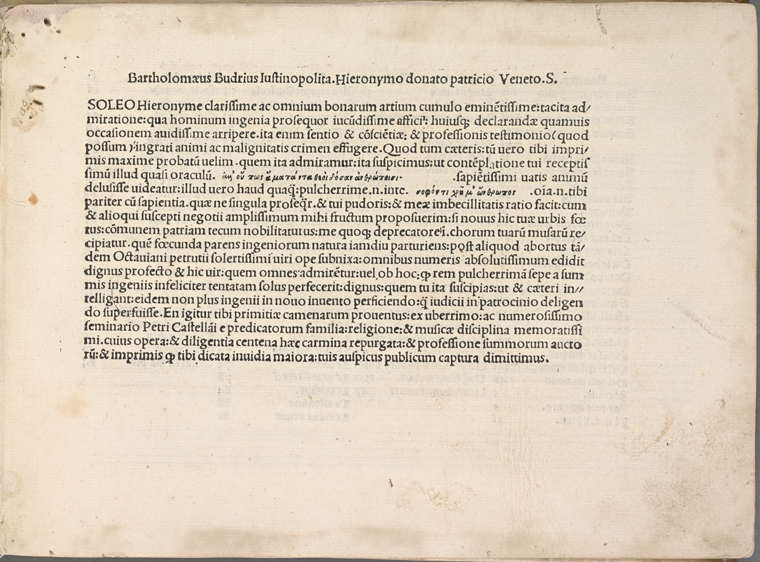 Bartholomæus Budrius Iustinopolita. Hieronymo donato patricio Veneto. S.
SOLEO Hieronyme clarissime ac omnium bonarum artium cumulo eminētissime: tacita ad/
miratione: qua hominum ingenia prosequor iucūdissime affici: huiusq; declarandæ quamuis
occasionem auidissime arripere. ita enim sentio & cōsciētiæ: & professionis testimonio( quod
possum )ingrati animi ac malignitatis crimen effugere. Quod tum cæteris: tū uero tibi impri/
mis maxime probatū uelim. quem ita admiramur: ita suspicimus: ut contēplatione tui receptis
simū illud quasi oraculū. sapiētissimi uatis animū
delusisse uideatur: illud uero haud quaq̄: pulcherrime. n. inte. .oīa. n. tibi
pariter cū sapientia. quæ ne singula proseq̄r. & tui pudoris: & meæ imbecillitatis ratio facit: cum
& alioqui suscepti negotii amplissimum mihi fructum proposuerim: si nouus hic tuæ urbis fœ
tus: cōmunem patriam tecum nobilitaturus: me quoq; deprecatore ī. chorum tuarū musarū re/
cipiatur. quē fœcunda parens ingeniorum natura iamdiu parturiens: post aliquod abortus tā/
dem Octauiani petrutii solertissimi uiri ope subnixa: omnibus numeris absolutissimum edidit
dignus profecto & hic uir: quem omnes admirētur: uel ob hoc: ꝙ rem pulcherrimā sepe a sum
mis ingeniis infeliciter tentatam solus perfecerit: dignus: quem tu ita suscipias: ut & cæteri in/
telligant: eidem non plus ingenii in nouo inuento perficiendo: q̄ iudicii in patrocinio deligen
do superfuisse. En igitur tibi primitiæ camenarum prouentus: ex uberrimo: ac numerosissimo
seminario Petri Castellāi e predicatorum familia: religione: & musicæ disciplina memoratissi
mi. cuius opera: & diligentia centena hæc carmina repurgata: & professione summorum aucto
rū: & imprimis ꝙ tibi dicata inuidia maiora: tuis auspicus publicum captura dimittimus.